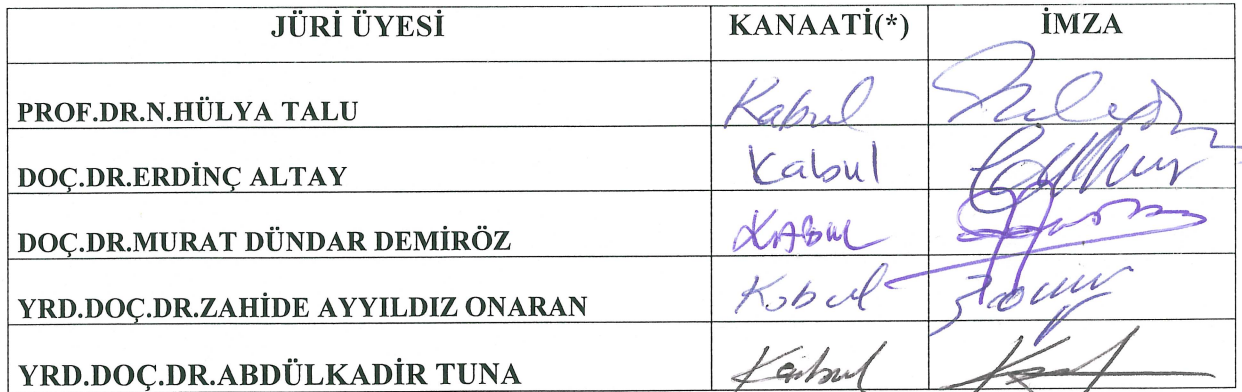 JÜRİ ÜYESİ KANAATİ(*) İMZA
PROF.DR.N.HÜLYA TALU Kabul
DOÇ.DR.ERDİNÇ ALTAY Kabul
DOÇ.DR.MURAT DÜNDAR DEMİRÖZ KABUL
YRD.DOÇ.DR.ZAHİDE AYYILDIZ ONARAN Kabul
YRD.DOÇ.DR.ABDÜLKADİR TUNA Kabul